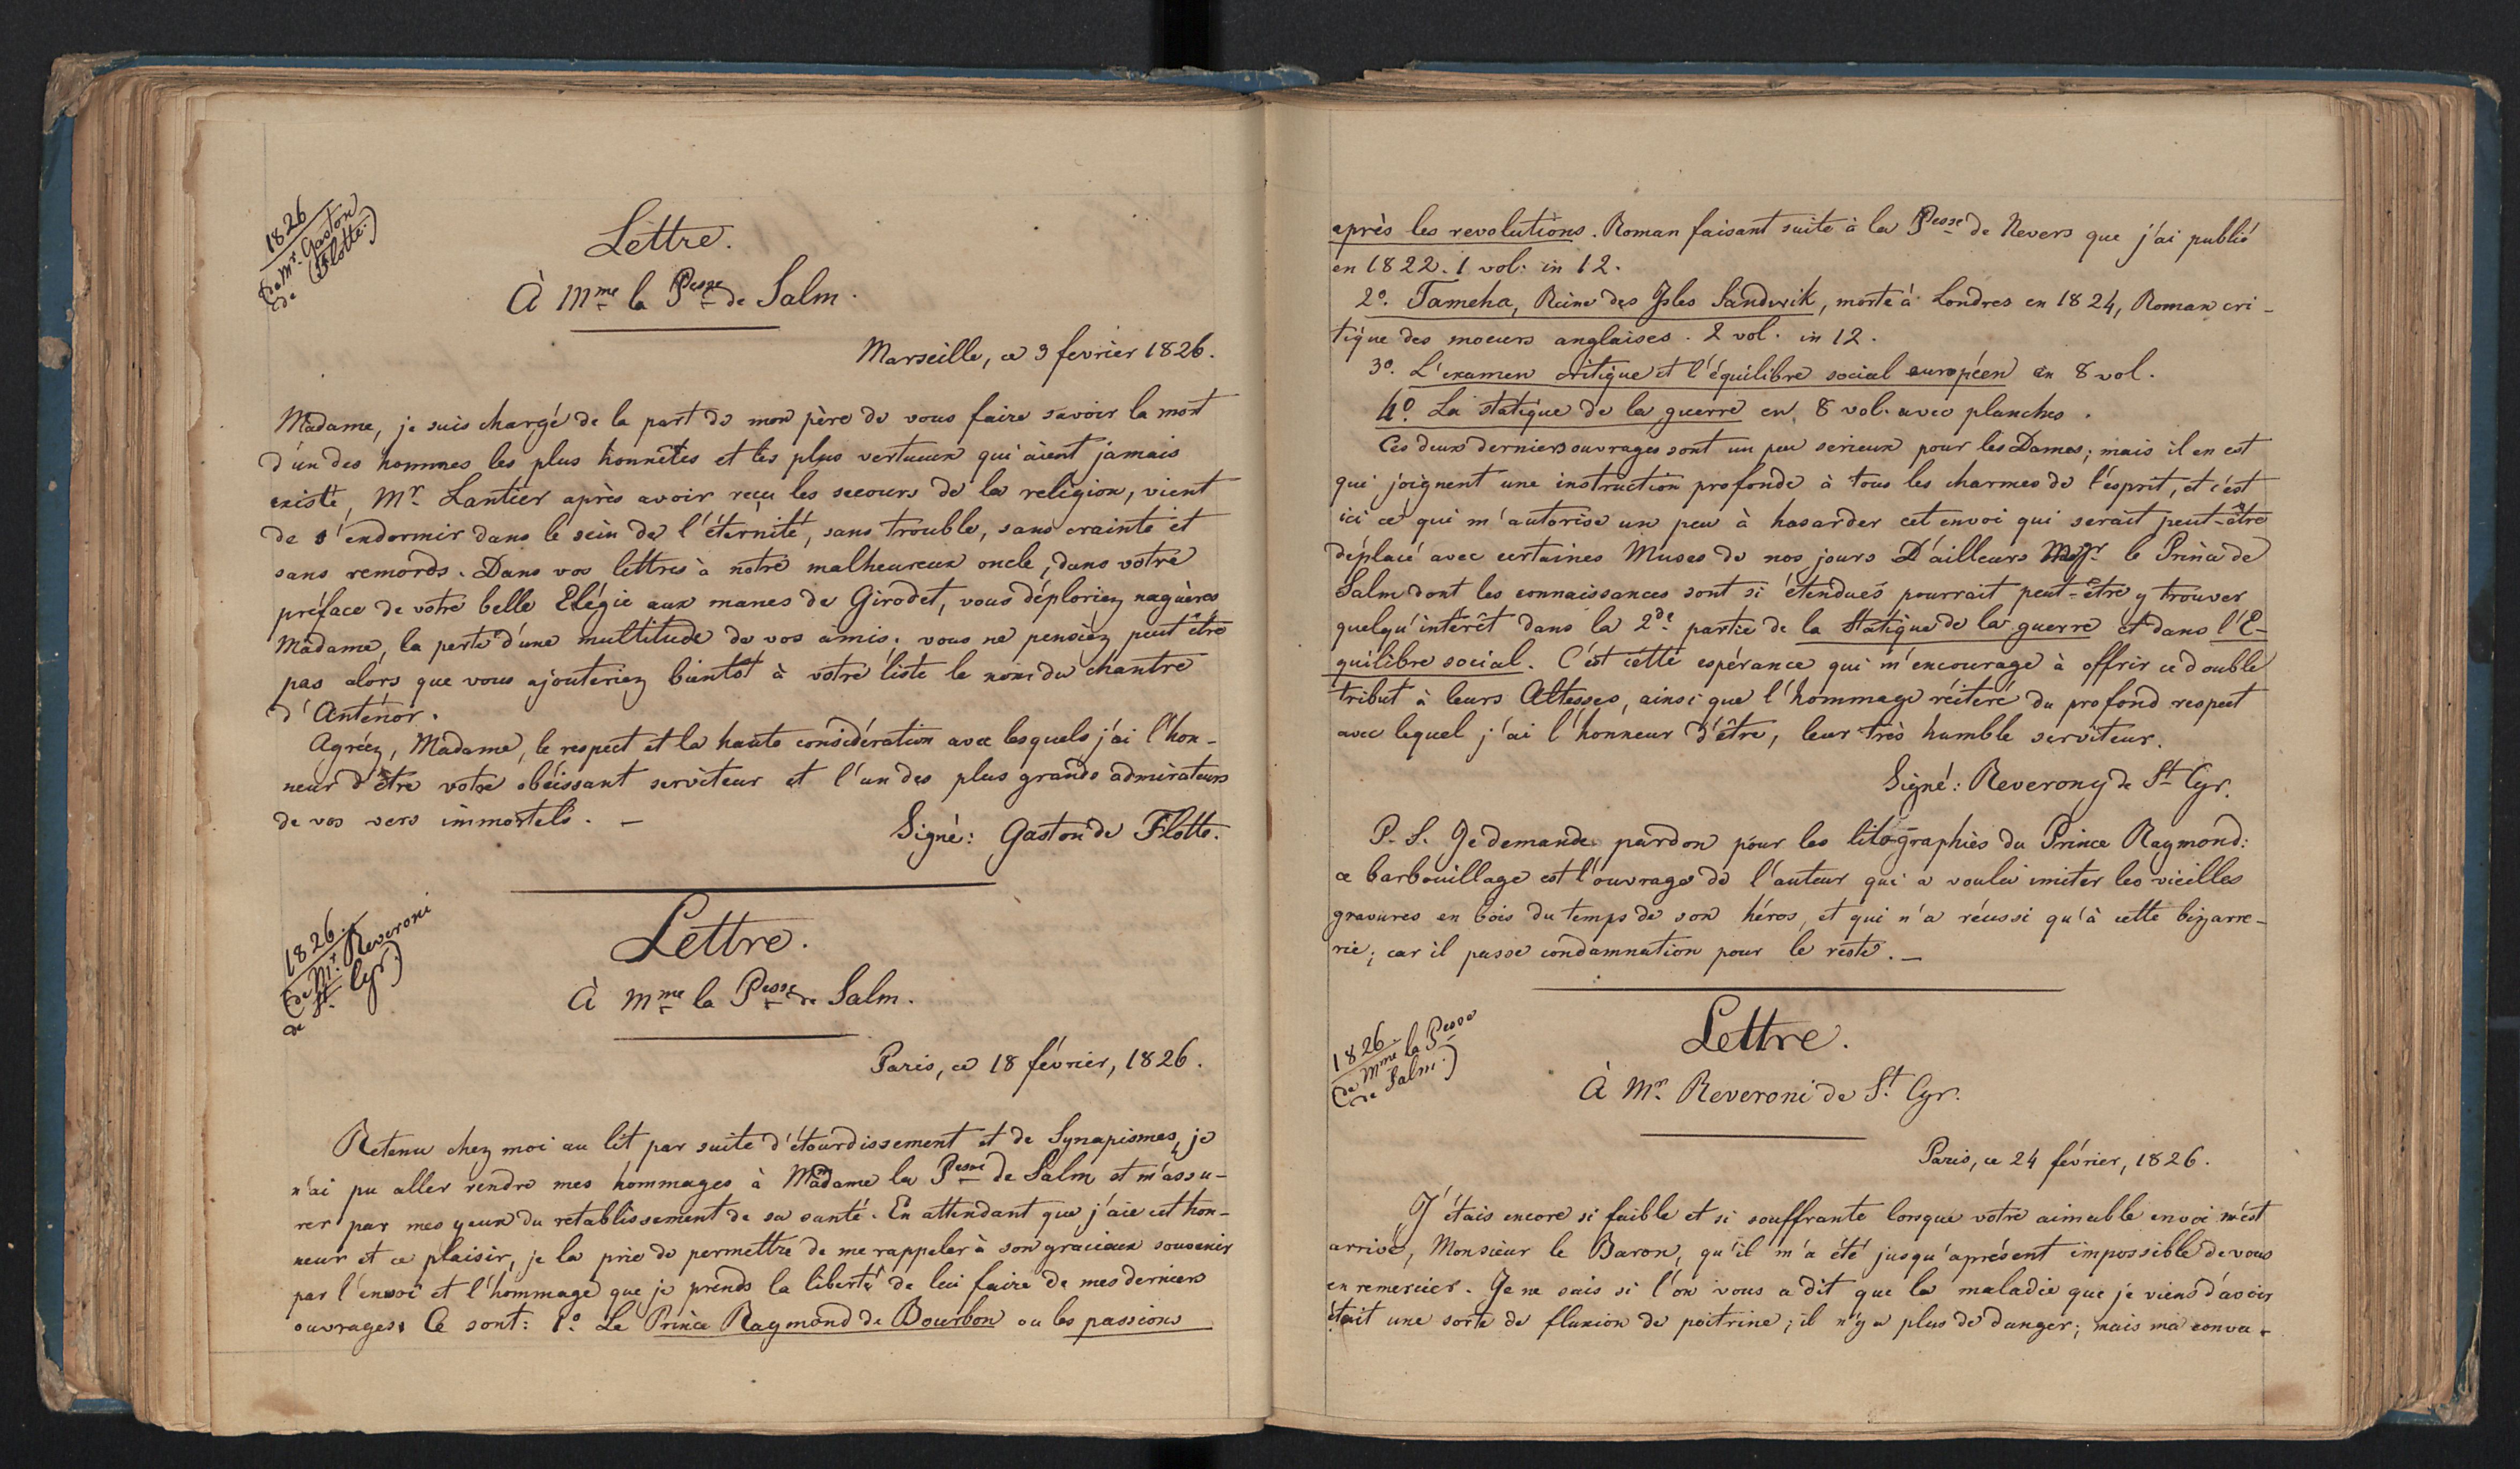 1826
(de Mr. Gaston
de Flotte.)
Lettre.
À Mme la Pesse de Salm.
Marseille, ce 3 fevrier 1826.
Madame, je suis chargé de la part de mon père de vous faire savoir la mort
d'un des hommes les plus honnêtes et les plus vertueux qui aient jamais
existé, Mr. Lantier après avoir reçu les secours de la religion, vient
de s'endormir dans le sein de l'éternité, sans trouble, sans crainte et
sans remords. Dans vos lettres à notre malheureux oncle, dans votre
préface de votre belle Elégie aux manes de Girodet, vous déploriez naguères
Madame, la perte d'une multitude de vos amis. vous ne pensiez peut être
pas alors que vous ajouteriez bientôt à votre liste le nom du chantre
d'Anténor.
Agréez, Madame, le respect et la haute considération avec lesquels j'ai l'hon-
neur d'être votre obéissant serviteur et l'un des plus grands admirateurs
de vos vers immortels. —
Signé: Gaston de Flotte.
1826.
(de Mr. Reveroni
de St. Cyr)
Lettre.
À Mme la Pesse de Salm.
Paris, ce 18 février, 1826.
Retenu chez moi au lit par suite d'étourdissement et de Synapismes, je
n'ai pu aller rendre mes hommages à Madame la Pesse de Salm et m'assu-
rer par mes yeux du retablissement de sa santé. En attendant que j'aie cet hon-
neur et ce plaisir, je la prie de permettre de me rappeler à son gracieux souvenir
par l'envoi et l'hommage que je prends la liberté de lui faire de mes derniers
ouvrages. Ce sont: 1º. Le Prince Raymond de Bourbon ou les passions
après les revolutions. Roman faisant suite à la Pesse de Nevers que j'ai publié
en 1822. 1 vol. in 12.
2º. Tameha, Reine des Isles Sandwik, morte à Londres en 1824, Roman cri-
tique des moeurs anglaises. 2 vol. in 12.
3º. L'examen critique et l'équilibre social européen en 8 vol.
4º. La statique de la guerre en 8 vol. avec planches.
Ces deux derniers ouvrages sont un peu serieux pour les Dames; mais il en est
qui joignent une instruction profonde à tous les charmes de l'esprit, et c'est
ici ce qui m'autorise un peu à hasarder cet envoi qui serait peut-être
déplacé avec certaines Muses de nos jours D'ailleurs le Prince de
Salm dont les connaissances sont si étendues pourrait peut-être y trouver
quelqu'intérêt dans la 2de. partie de la Statique de la guerre et dans l'E-
quilibre social. C'est cette espérance qui m'encourage à offrir ce double
tribut à leurs Altesses, ainsi que l'hommage réitéré du profond respect
avec lequel j'ai l'honneur d'être, leur très humble serviteur.
Signé: Reverony de St. Cyr.
P. S. Je demande pardon pour les litographies du Prince Raymond:
ce barbouillage est l'ouvrage de l'auteur qui a voulu imiter les vieilles
gravures en bois du temps de son héros, et qui n'a réussi qu'à cette bizarre-
rie; car il passe condamnation pour le reste. —
1826.
(de Mme la Pesse
de Salm.)
Lettre.
À Mr. Reveroni de St. Cyr.
Paris, ce 24 février, 1826.
J'étais encore si faible et si souffrante lorsque votre aimable envoi m'est
arrivé, Monsieur le Baron, qu'il m'a été jusqu'aprésent impossible de vous
en remercier. Je ne sais si l'on vous a dit que la maladie que je viens d'avoir
était une sorte de fluxion de poitrine; il n'y a plus de danger; mais ma conva-